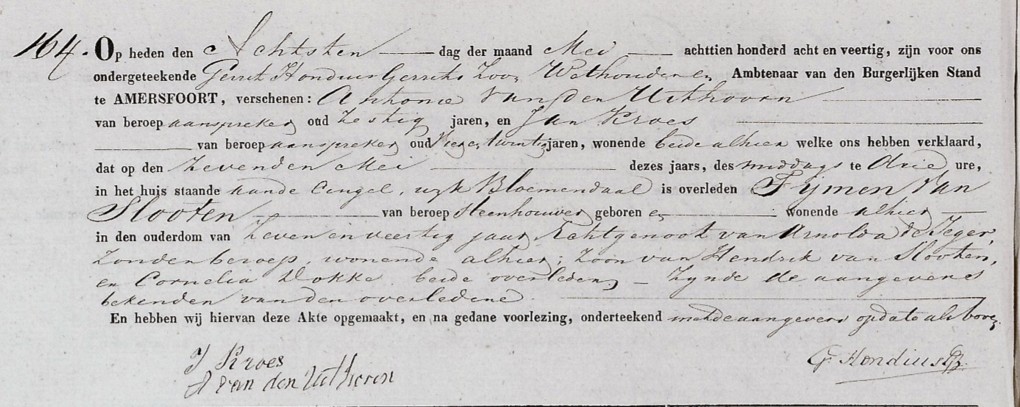 164. Op heden den Achtsten dag der maand Mei achttien honderd acht en veertig, zijn voor ons
ondergeteekende Gerrit Hondius Gerrits Zoon Wethouder en Ambtenaar van den Burgerlijken Stand
te AMERSFOORT, verschenen: Anthonie van den Uithoorn
van beroep aanspreker oud Zestig jaren, en Jan Kroes
van beroep aanspreker oud Negentwintig jaren, wonende beide alhier welke ons hebben verklaard,
dat op den Zevenden Mei dezes jaars, des middags te drie ure,
in het huis staande aan de Cingel, wijk Bloemendaal is overleden Tymen van
Slooten van beroep steenhouwer geboren en wonende alhier
in den ouderdom van Zeven en veertig jaar, Echtgenoot van Arnolda de Jeger,
zonder beroep, wonende alhier; zoon van Hendrik van Slooten,
en Cornelia Dokke beide overleden, – Zynde de aangevers
bekenden van den overledene.
En hebben wij hiervan deze Akte opgemaakt, en na gedane voorlezing, onderteekend met de aangevers op dato als boven
J Kroes
A van den Uithoorn
G Hondius Gz